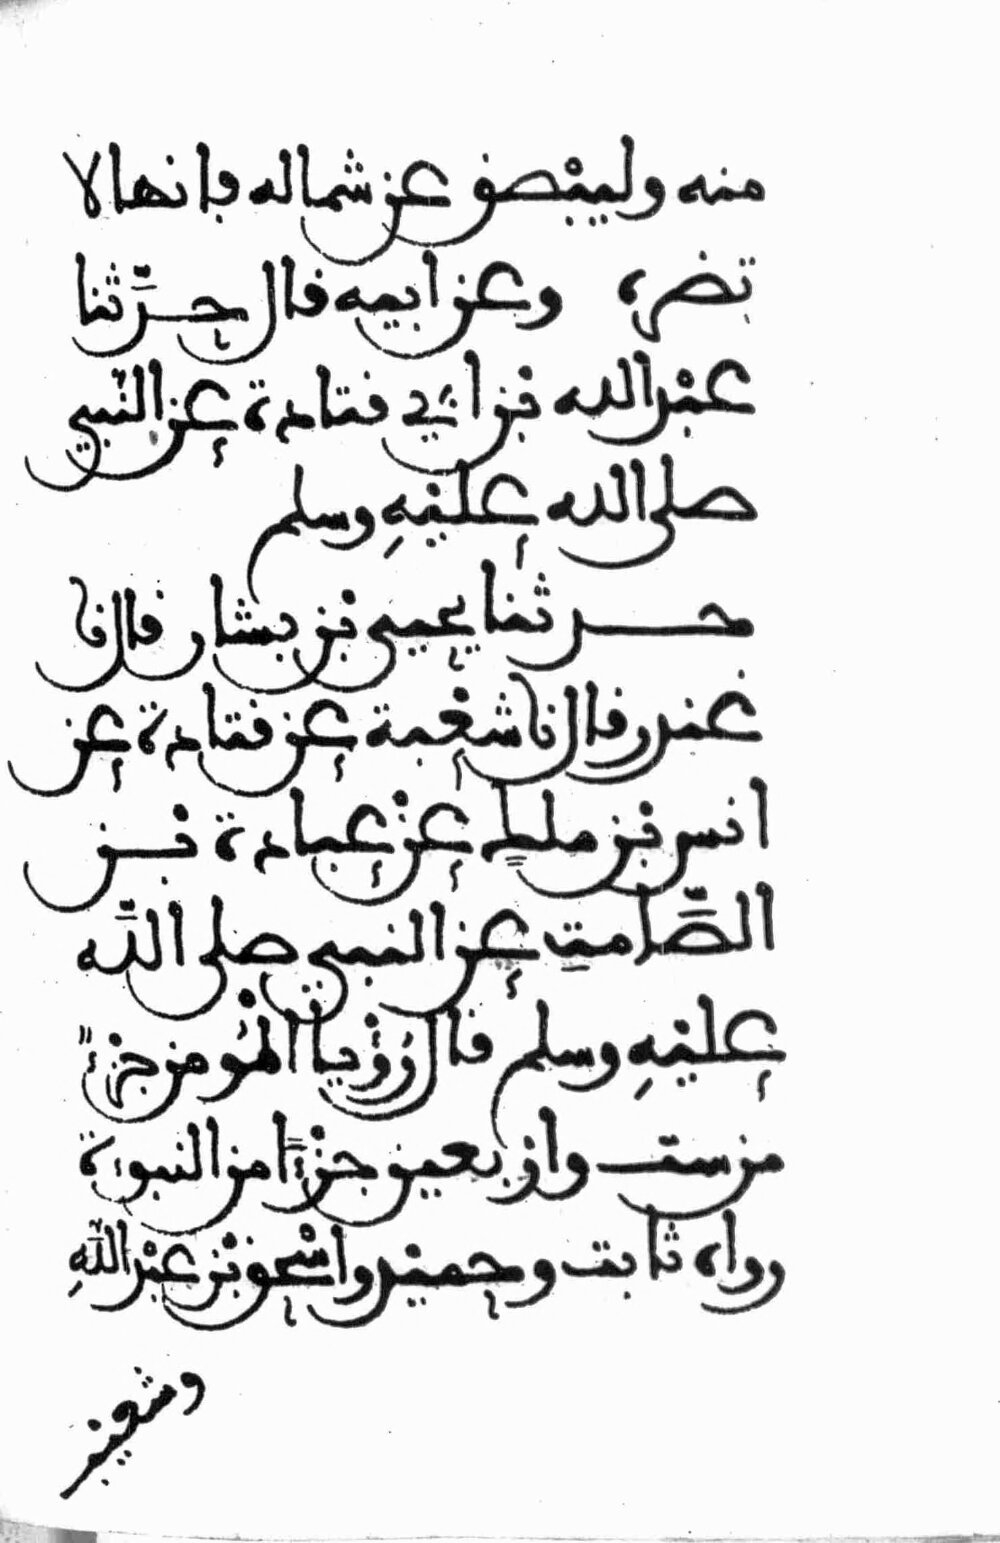 منه وليبصق عن شماله فإنها لا
تضره وعن ابيه قال حدّثنا
عبد الله بن ابي قتادة عن النبي
صلى الله عليه وسلم
حدثنا يحيى بن بشار قال نا
غندر قال نا شعبة عن قتادة عن
انس بن ملك عن عبادة بن
الصّامت عن النبي صلى الله
عليه وسلم قال رؤيا المؤمن جزءٌ
من ست واربعين جزءًا من النبوءة
رواه ثابت وحميد واسحق بن عبد الله
وشعيب